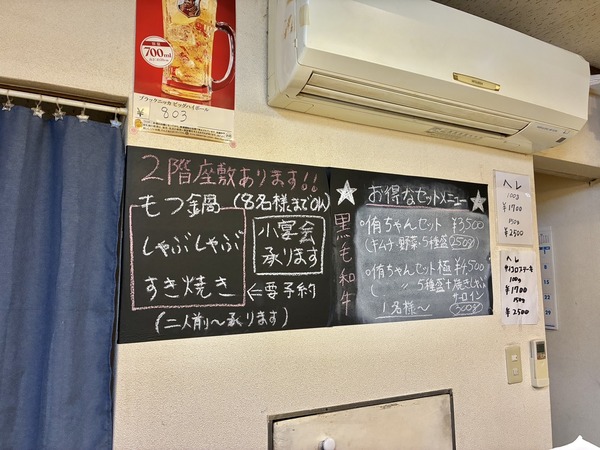 700ml
ブラックニッカ ビッグハイボール
¥ 803
2階座敷あります!!
もつ鍋 (8名様までOK)
しゃぶしゃぶ
すき焼き
小宴会
承ります
⇐要予約
(二人前〜承ります)
お得なセットメニュー
黒毛和牛
侑ちゃんセット ¥3,500
(キムチ・野菜・5種盛250g)
侑ちゃんセット極 ¥4,500
( 〃 5種盛+焼きしゃぶ
サーロイン
1名様〜 300g)
ヘレ
100g
¥1700
150g
¥2500
ヘレ
サイコロステーキ
100g
¥1700
150g
¥2500